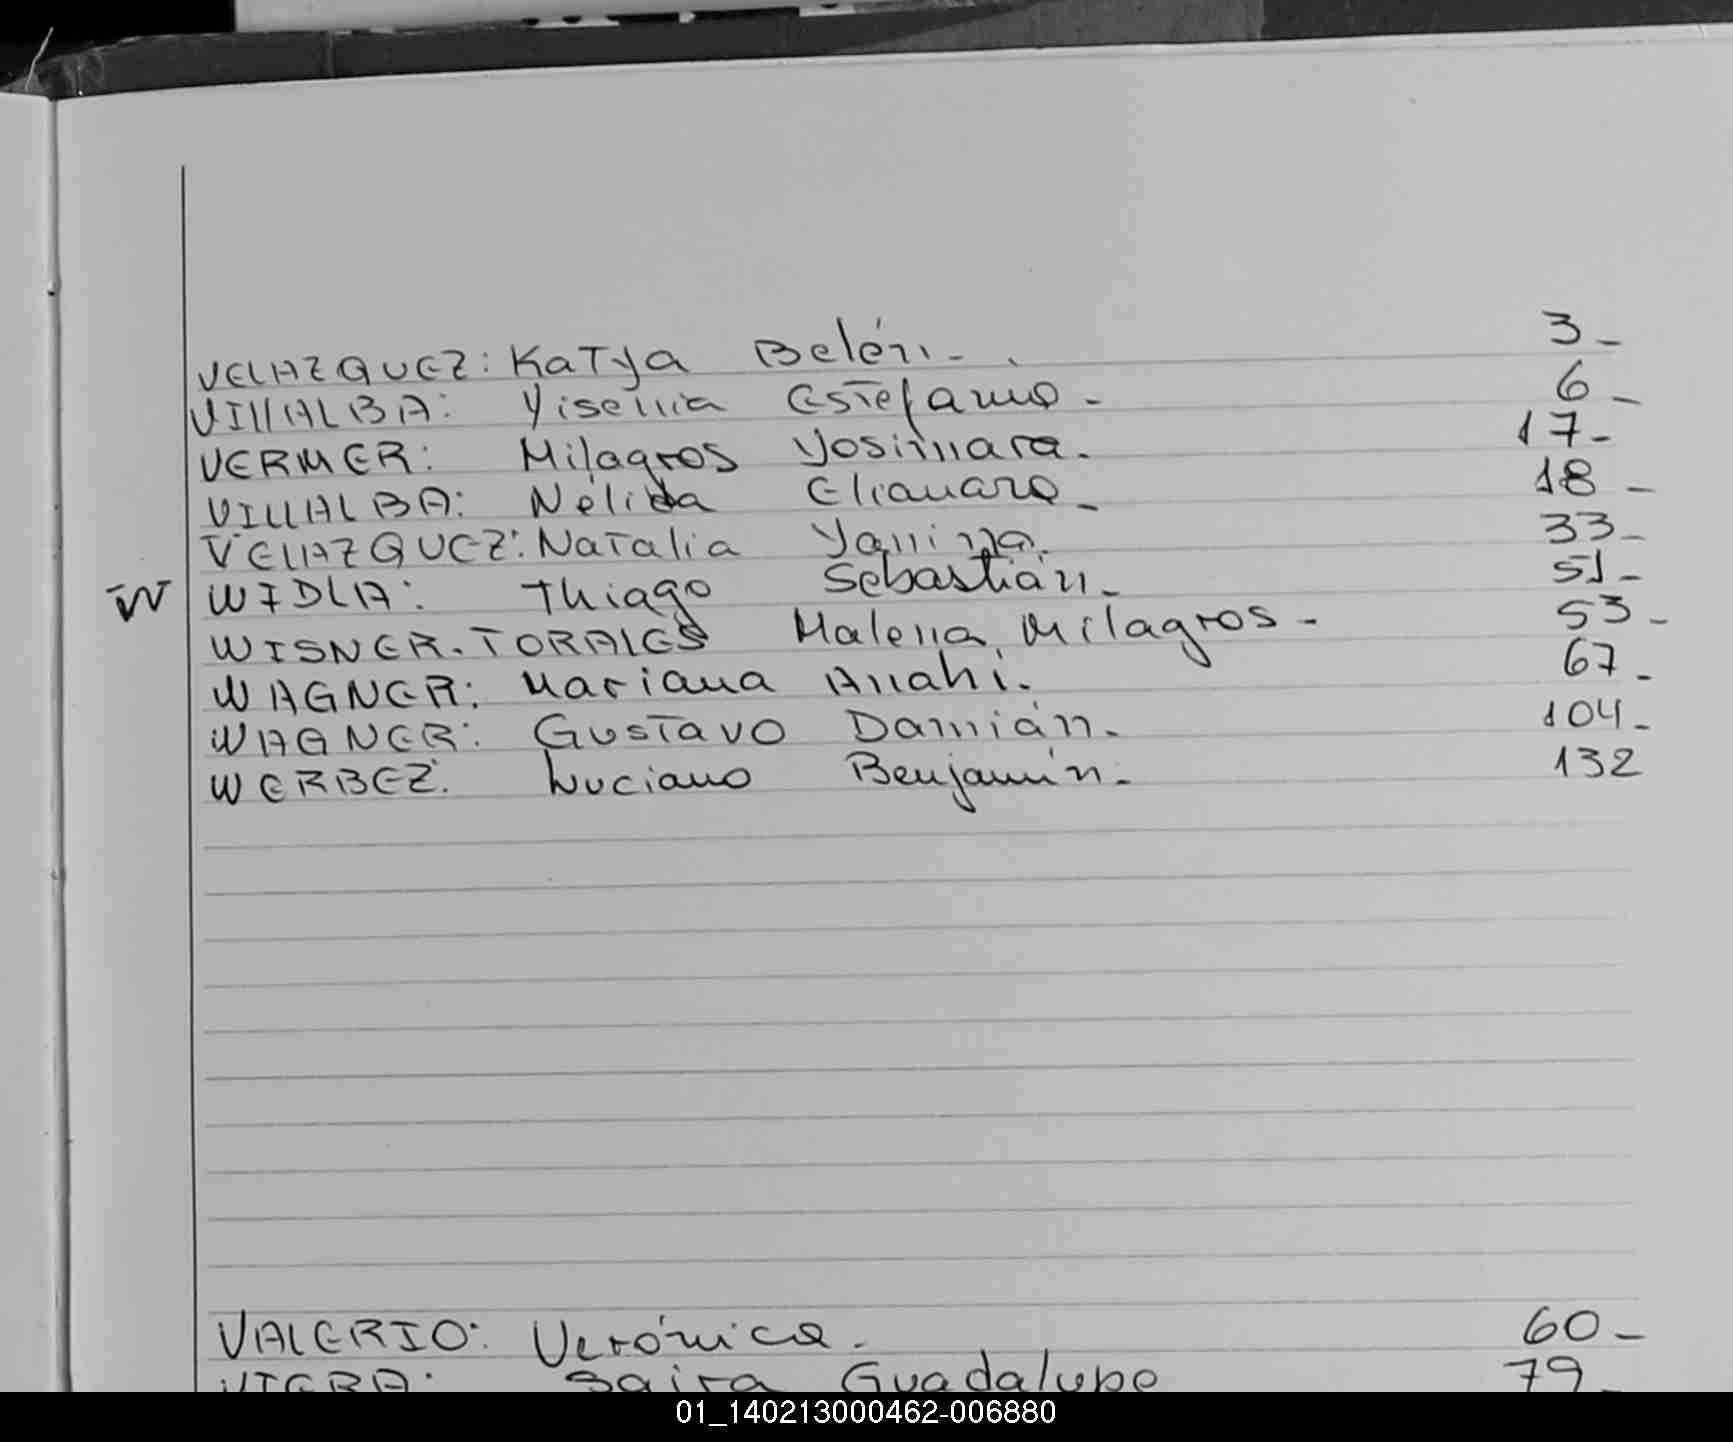 VELAZQUEZ: Katya Belén. 3_
VILLALBA: Yisenia Estefania_ 6_
VERMER: Milagros Yosimara. 17_
VILLALBA: Nélida Elianara_ 18_
VELAZQUEZ: Natalia Yanina. 33_
W WIDLA: Thiago Sebastián_ 51_
WISNER. TORALES Malena Milagros_ 53_
WAGNER: Mariana Anahi. 67_
WAGNER: Gustavo Damián. 104_
WERBEZ: Luciano Benjamín_ 132
VALERIO: Verónica_ 60_
VIERA: Saira Guadalupe 79_
01_140213000462-006880